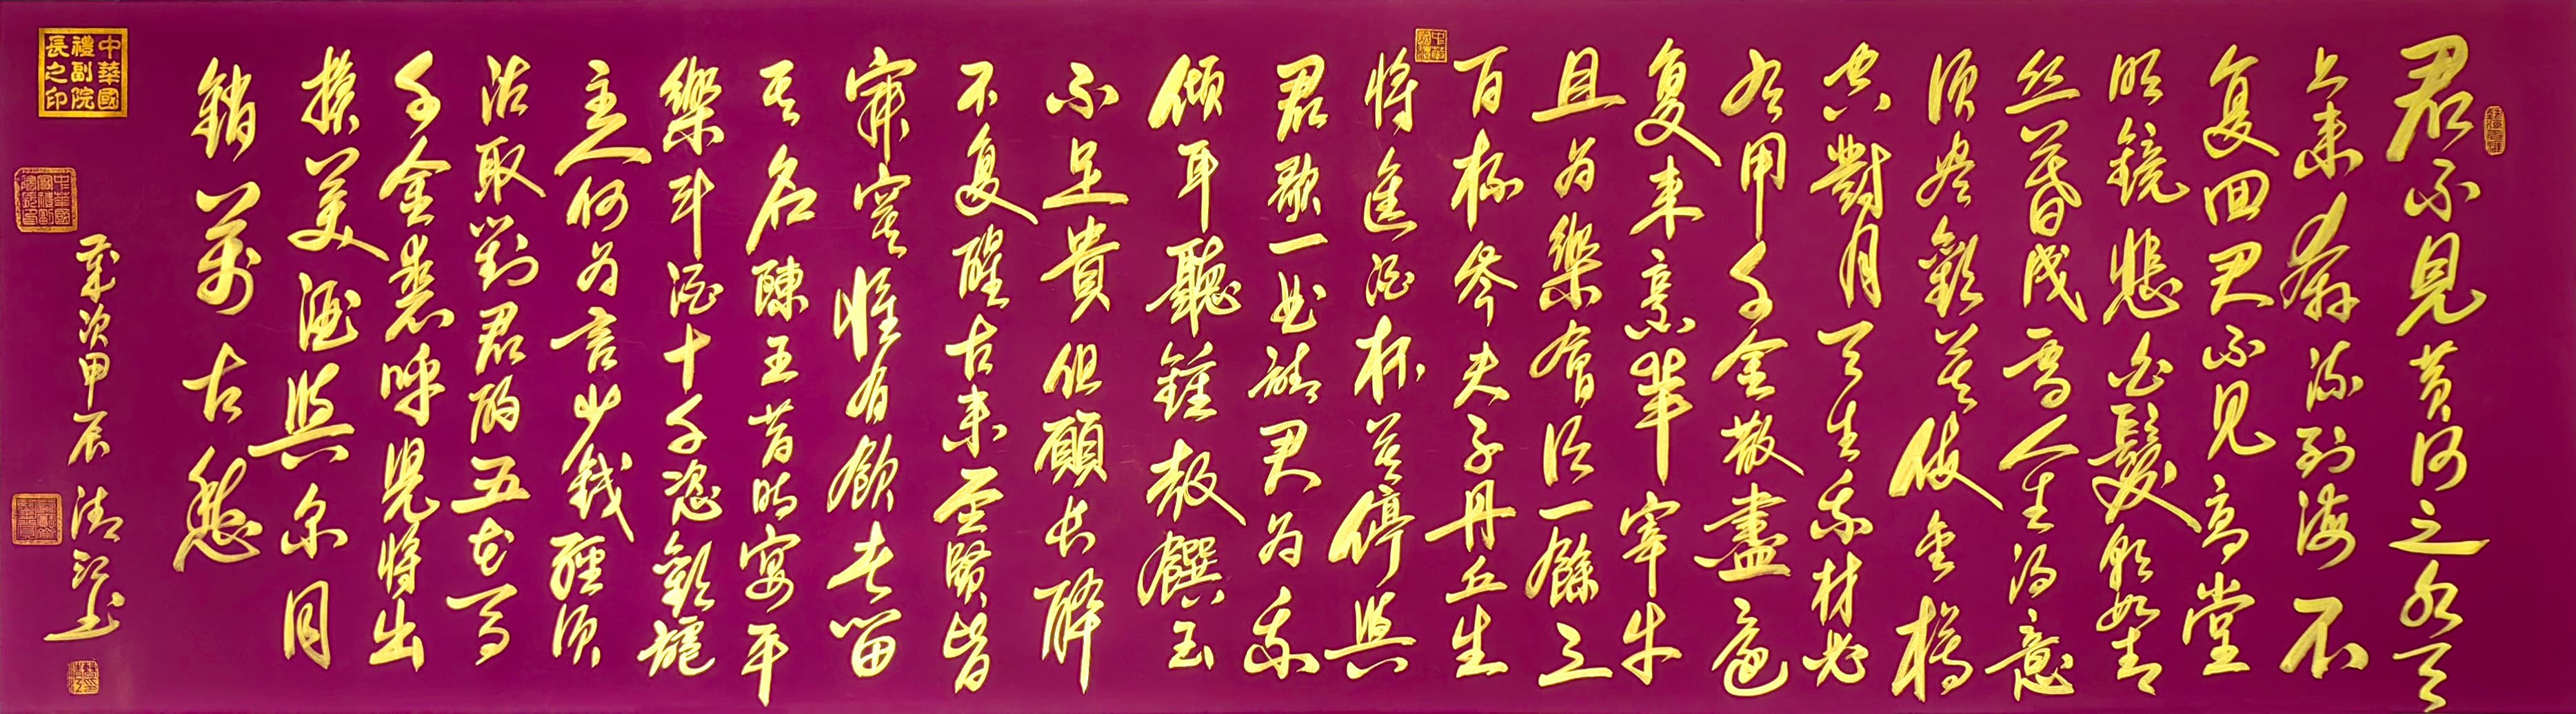 君不見黃河之水天
上来奔流到海不
复回君不見高堂
明鏡悲白髮朝如青
丝暮成雪人生得意
須尽歡莫使金樽
空對月天生我材必
有用千金散盡還
复来烹羊宰牛
且为樂會須一飲三
百杯岑夫子丹丘生
將進酒杯莫停與
君歌一曲請君为我
傾耳聽鍾鼓饌玉
不足貴但願长醉
不复醒古来聖賢皆
寂寞惟有飲者留
其名陳王昔时宴平
樂斗酒十千恣歡謔
主人何为言少錢徑須
沽取對君酌五花馬
千金裘呼兒將出
換美酒與尔同
銷萬古愁
歲次甲辰
中華國禮副院長之印